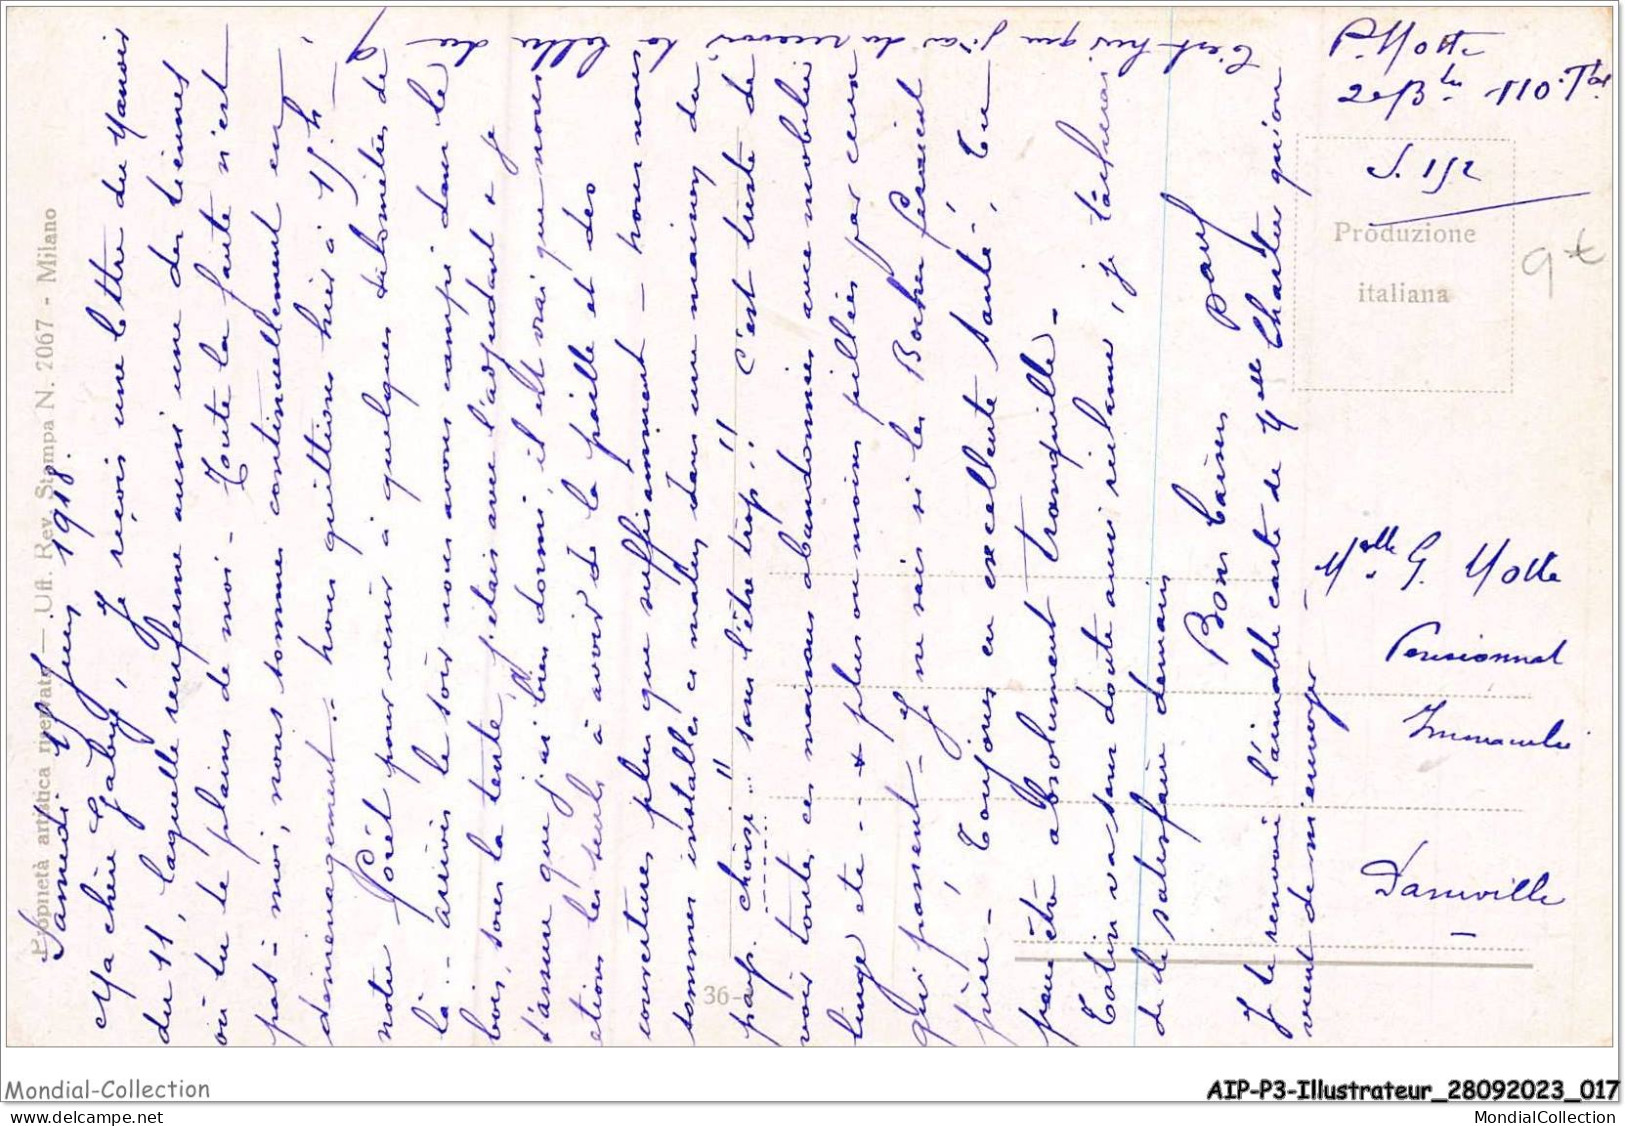 Samedi 15 Juin 1918.
Ma chère Gaby, Je reçois une lettre du Manoir
du 11, laquelle renferme aussi une des tiennes
où tu te plains de moi - Toute la faute n'est
pas à moi, nous sommes continuellement en
déménagement - nous quittions hier à 15 h
notre forêt pour venir à quelques kilomètres de
là... arrivés le soir nous avons campé dans le
bois, sous la tente, j'étais avec l'adjudant & je
t'assure que j'ai bien dormi, il est vrai que nous
étions les seuls à avoir de la paille et des
couvertures plus que suffisamment - nous nous
sommes installés ce matin dans une maison du
pays choisi... sans l'être trop!! C'est triste de
voir toutes ces maisons abandonnées avec mobilier
linge etc.. & plus ou moins pillées par ceux
qui passent - Je ne sais si les Boches feraient
pire - Toujours en excellente santé, tu
peux être absolument tranquille -
Catin va sans doute aussi réclamer, je tâcherai
de le satisfaire demain
Bons baisers Paul
Je te renvoie l'aimable carte de Melle Chartier qu'on
vient de m'envoyer -
C'est hier que j'ai dû recevoir ta lettre du 9.
P. Motte
2e Bie 110 Tal
S. 152
9€
Melle G. Motte
Pensionnat
Immaculée
Damville
Proprietà artistica riservata — Uff. Rev. Stampa N. 2067 - Milano
Produzione
italiana
36-
Mondial-Collection
AIP-P3-Illustrateur_28092023_017
www.delcampe.net
MondialCollection